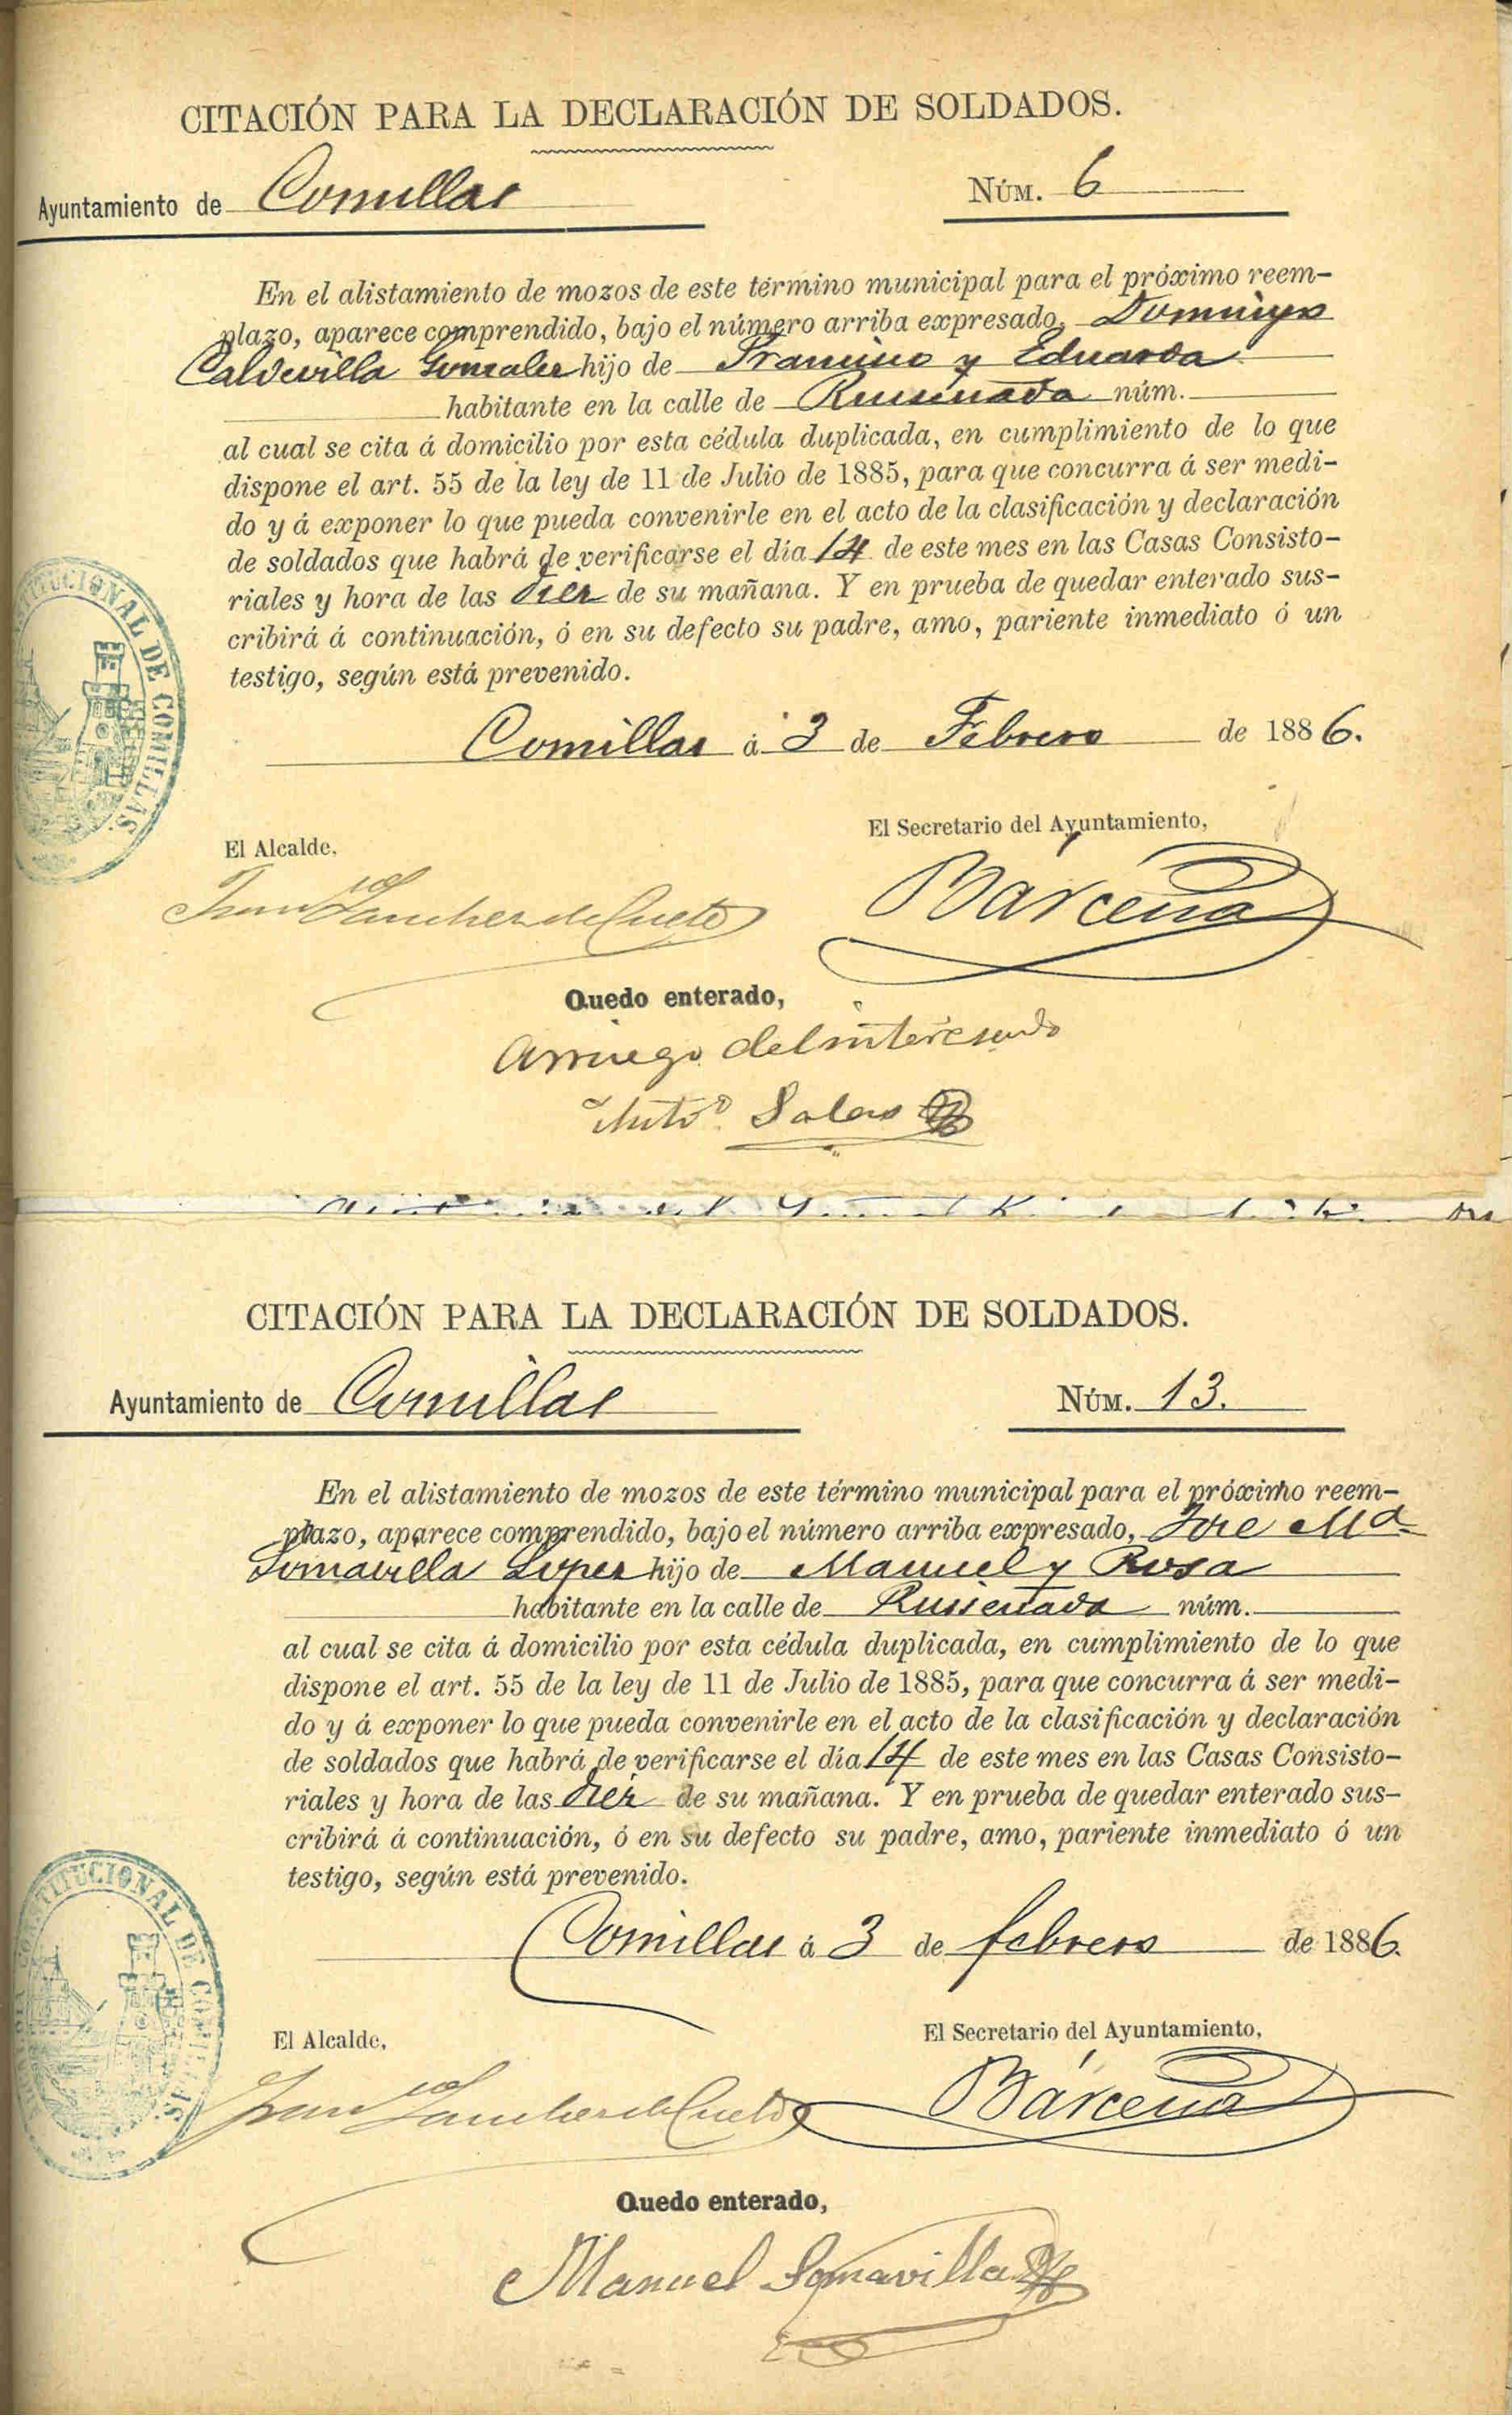 CITACIÓN PARA LA DECLARACIÓN DE SOLDADOS.
Ayuntamiento de Comillas NÚM. 6
En el alistamiento de mozos de este término municipal para el próximo reem-
plazo, aparece comprendido, bajo el número arriba expresado, Domingo
Caldevilla Gonzalez hijo de Francisco y Eduarda
habitante en la calle de Ruiseñada núm.
al cual se cita á domicilio por esta cédula duplicada, en cumplimiento de lo que
dispone el art. 55 de la ley de 11 de Julio de 1885, para que concurra á ser medi-
do y á exponer lo que pueda convenirle en el acto de la clasificación y declaración
de soldados que habrá de verificarse el día 14 de este mes en las Casas Consisto-
riales y hora de las diez de su mañana. Y en prueba de quedar enterado sus-
cribirá á continuación, ó en su defecto su padre, amo, pariente inmediato ó un
testigo, según está prevenido.
Comillas á 3 de Febrero de 1886.
CIONAL DE COMILLAS.
El Alcalde, El Secretario del Ayuntamiento,
Juan Sanchez de Cueto Bárcena
Quedo enterado,
Arruego del interesado
Antº Salas
CITACIÓN PARA LA DECLARACIÓN DE SOLDADOS.
Ayuntamiento de Comillas NÚM. 13.
En el alistamiento de mozos de este término municipal para el próximo reem-
plazo, aparece comprendido, bajo el número arriba expresado, Jose Mª
Somavilla Lopez hijo de Manuel y Rosa
habitante en la calle de Ruiseñada núm.
al cual se cita á domicilio por esta cédula duplicada, en cumplimiento de lo que
dispone el art. 55 de la ley de 11 de Julio de 1885, para que concurra á ser medi-
do y á exponer lo que pueda convenirle en el acto de la clasificación y declaración
de soldados que habrá de verificarse el día 14 de este mes en las Casas Consisto-
riales y hora de las diez de su mañana. Y en prueba de quedar enterado sus-
cribirá á continuación, ó en su defecto su padre, amo, pariente inmediato ó un
testigo, según está prevenido.
Comillas á 3 de febrero de 1886.
TITUCIONAL DE COMILLAS.
El Alcalde, El Secretario del Ayuntamiento,
Juan Sanchez de Cueto Bárcena
Quedo enterado,
Manuel Somavilla